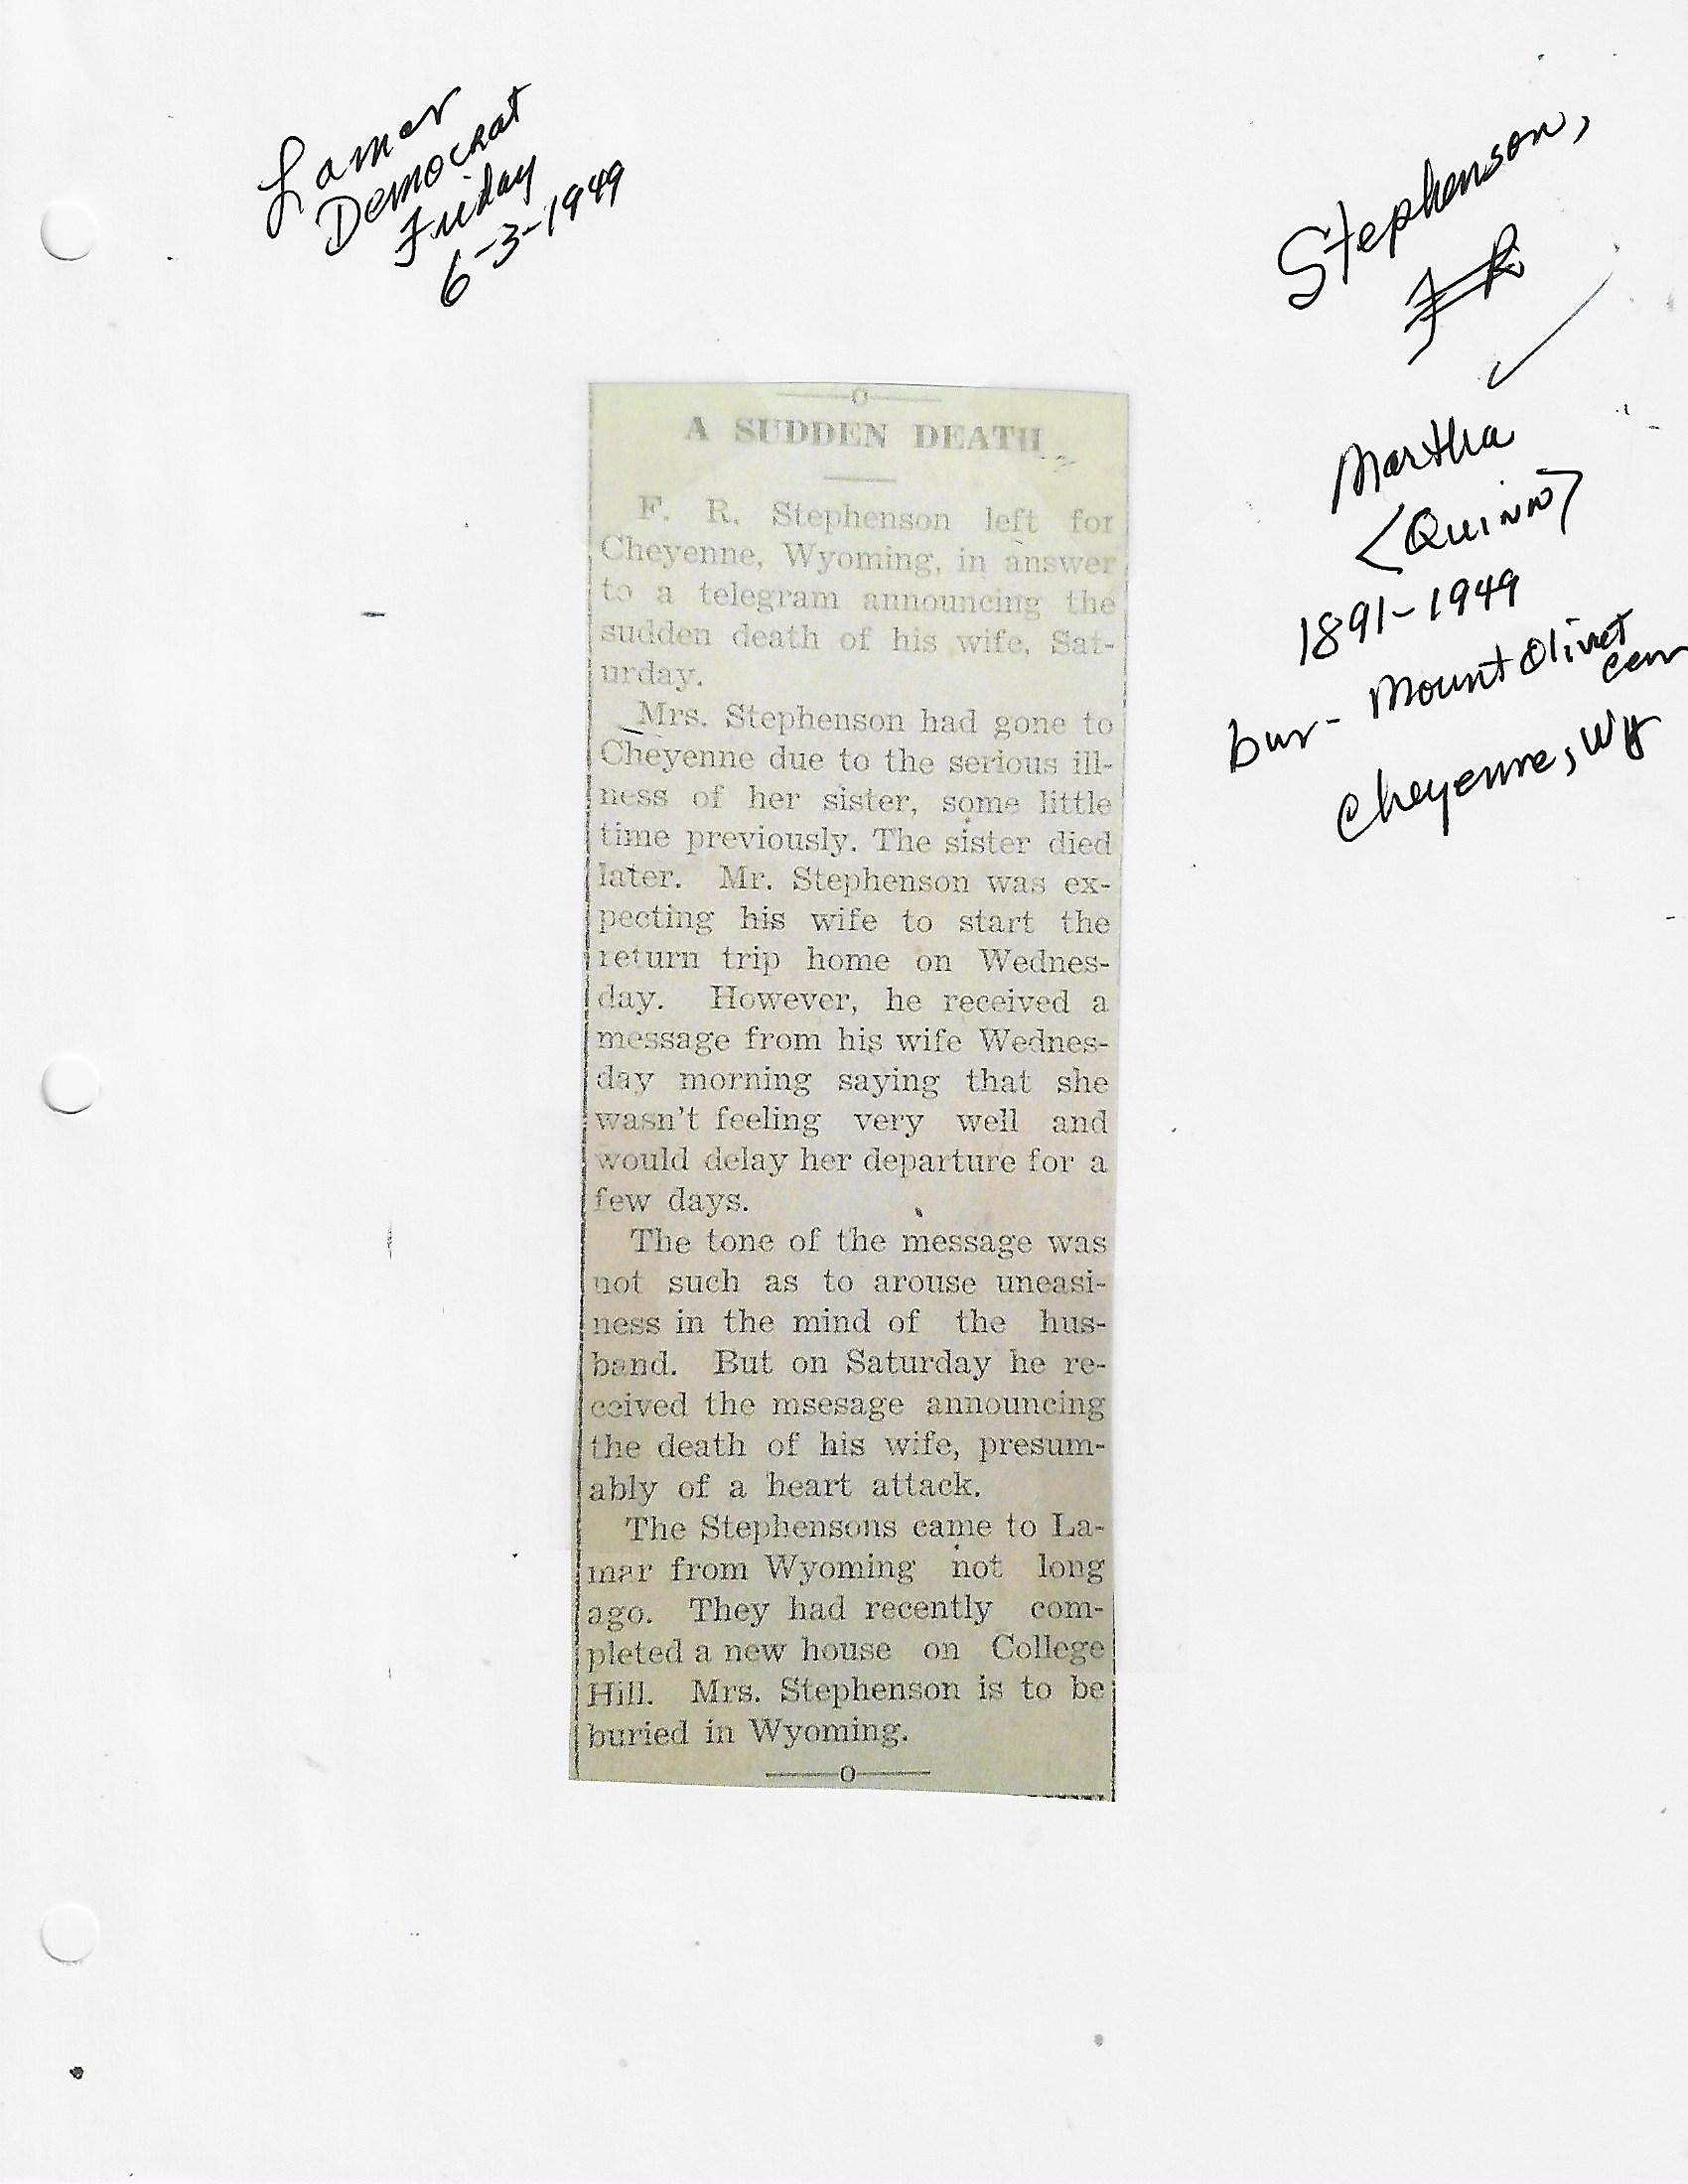 Lamar
Democrat
Friday
6-3-1949
Stephenson,
F R
Martha
<Quinn>
1891-1949
bur- Mount Olivet
cem
Cheyenne, Wy
A SUDDEN DEATH
F. R. Stephenson left for
Cheyenne, Wyoming, in answer
to a telegram announcing the
sudden death of his wife, Sat-
urday.
Mrs. Stephenson had gone to
Cheyenne due to the serious ill-
ness of her sister, some little
time previously. The sister died
later. Mr. Stephenson was ex-
pecting his wife to start the
return trip home on Wednes-
day. However, he received a
message from his wife Wednes-
day morning saying that she
wasn't feeling very well and
would delay her departure for a
few days.
The tone of the message was
not such as to arouse uneasi-
ness in the mind of the hus-
band. But on Saturday he re-
ceived the msesage announcing
the death of his wife, presum-
ably of a heart attack.
The Stephensons came to La-
mar from Wyoming not long
ago. They had recently com-
pleted a new house on College
Hill. Mrs. Stephenson is to be
buried in Wyoming.